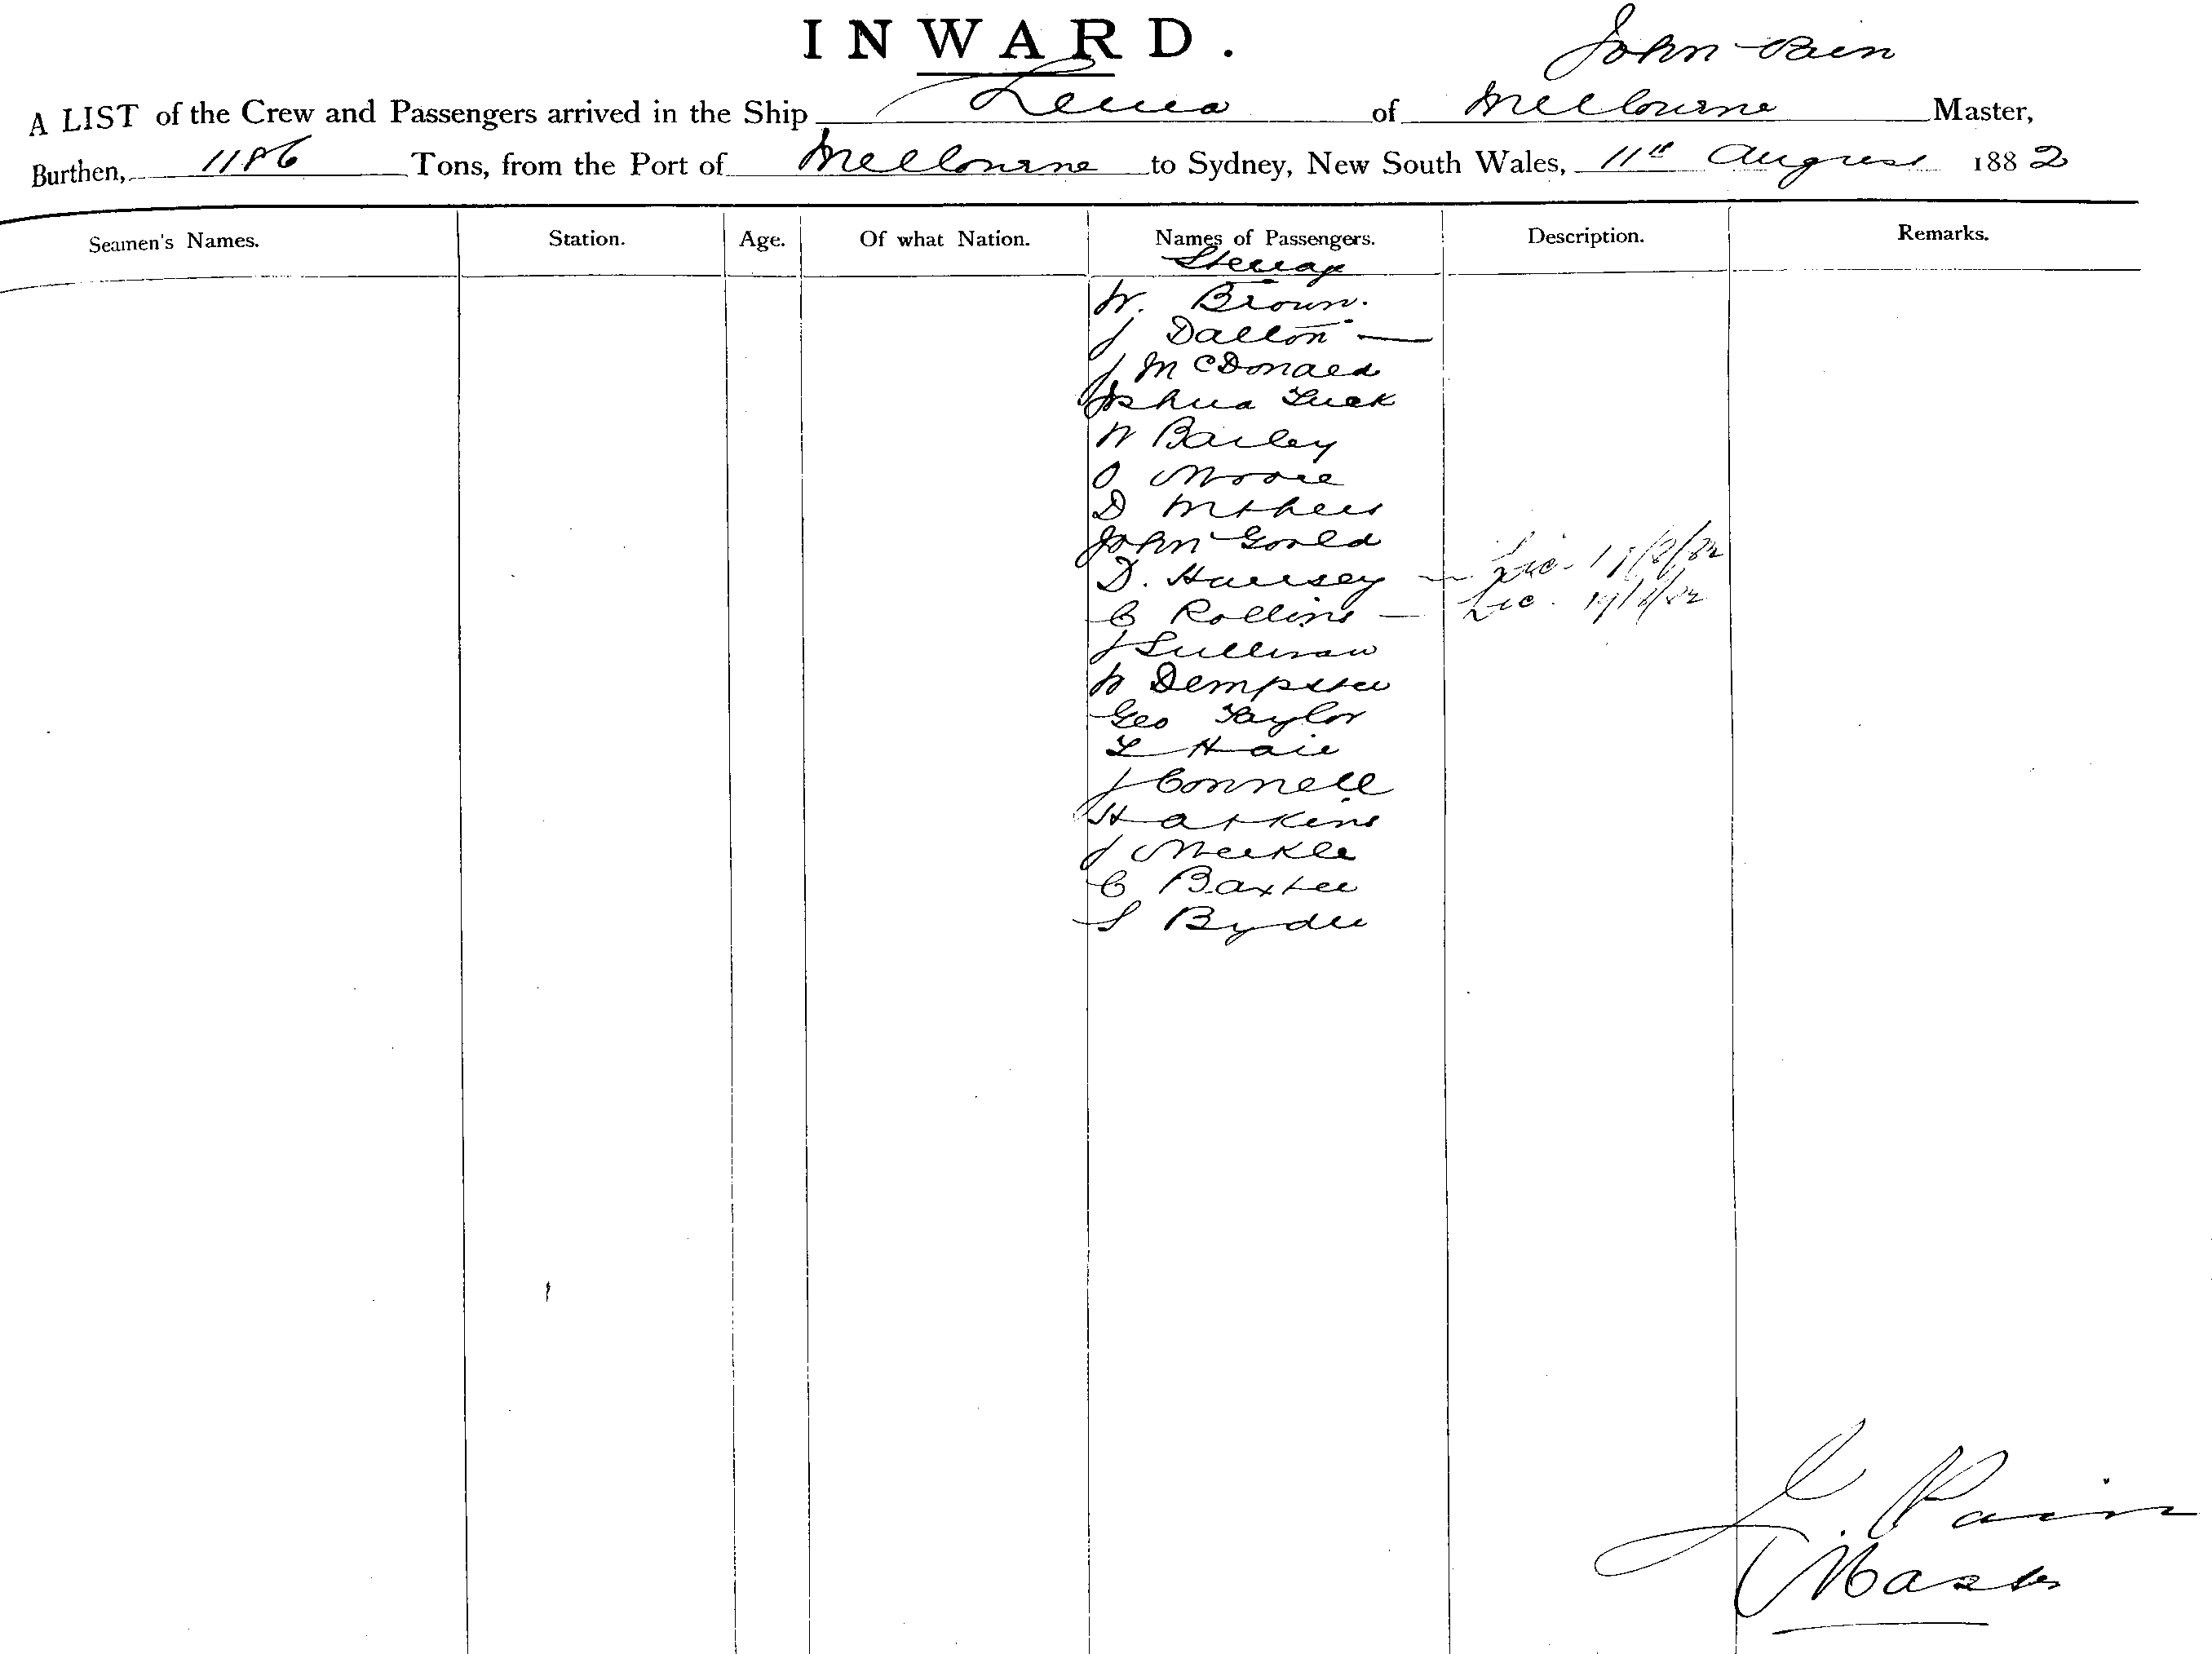 INWARD.
John Pain
A LIST of the Crew and Passengers arrived in the Ship of Melbourne Master,
Burthen, 1186 Tons, from the Port of Melbourne to Sydney, New South Wales, 11th August 1882
Seamen's Names. Station. Age. Of what Nation. Names of Passengers. Description. Remarks.
Steerage
W. Brown.
J Dalton —
J McDonald
Joshua Luck
W Bailey
O Moore
D
John Gould
D. — Lic. 19/8/82
C Rollins — Lic. 19/8/82
J Sullivan
W Dempster
Geo Taylor
L Hair
J Connell
H Atkins
J Meikle
C Baxter
S Ryder
J. Pain
Master